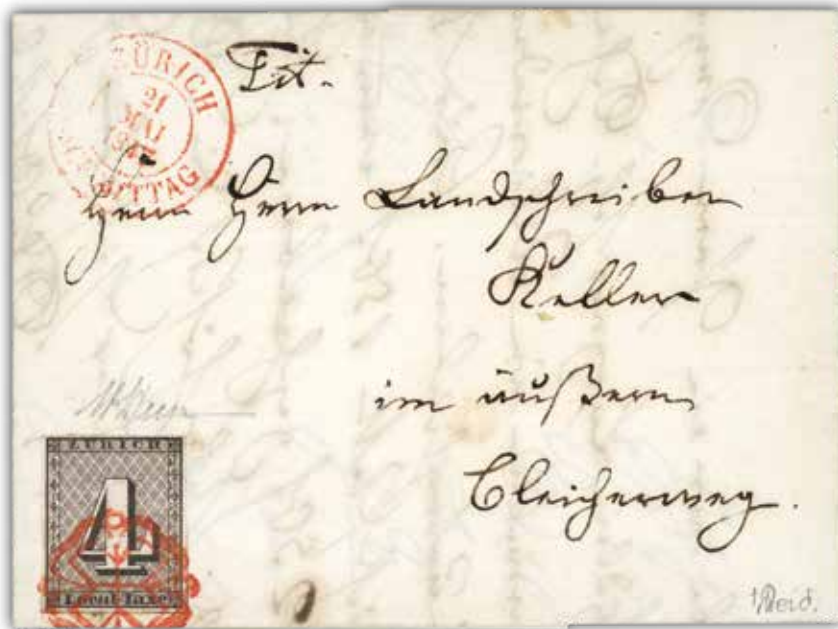 ZÜRICH
21
MAI
MITTAG
Tit.
Herrn Herrn Landschreiber
Keller
im äußern
Bleicherweg.
ZÜRICH
4
Local-Taxe